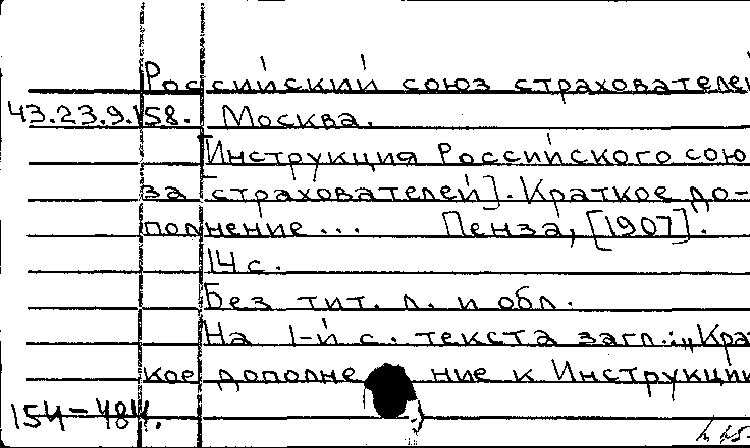 Российский союз страхователей
43.23.9.158. Москва.
[Инструкция Российского сою-
за [страхователей]. Краткое до-
полнение... Пенза, [1907].
14 с.
Без тит. л. и обл.
На 1-й с. текста загл.: „Крат
кое дополнение к Инструкции
154-484.